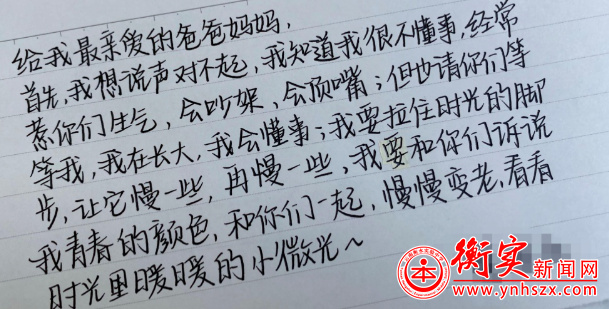 给我最亲爱的爸爸妈妈，
首先，我想说声对不起，我知道我很不懂事，经常
惹你们生气，会吵架，会顶嘴；但也请你们等
等我，我在长大，我会懂事；我要拉住时光的脚
步，让它慢一些，再慢一些，我要和你们诉说
我青春的颜色，和你们一起，慢慢变老，看看
时光里暖暖的小微光～
衡实新闻网
www.ynhszx.com